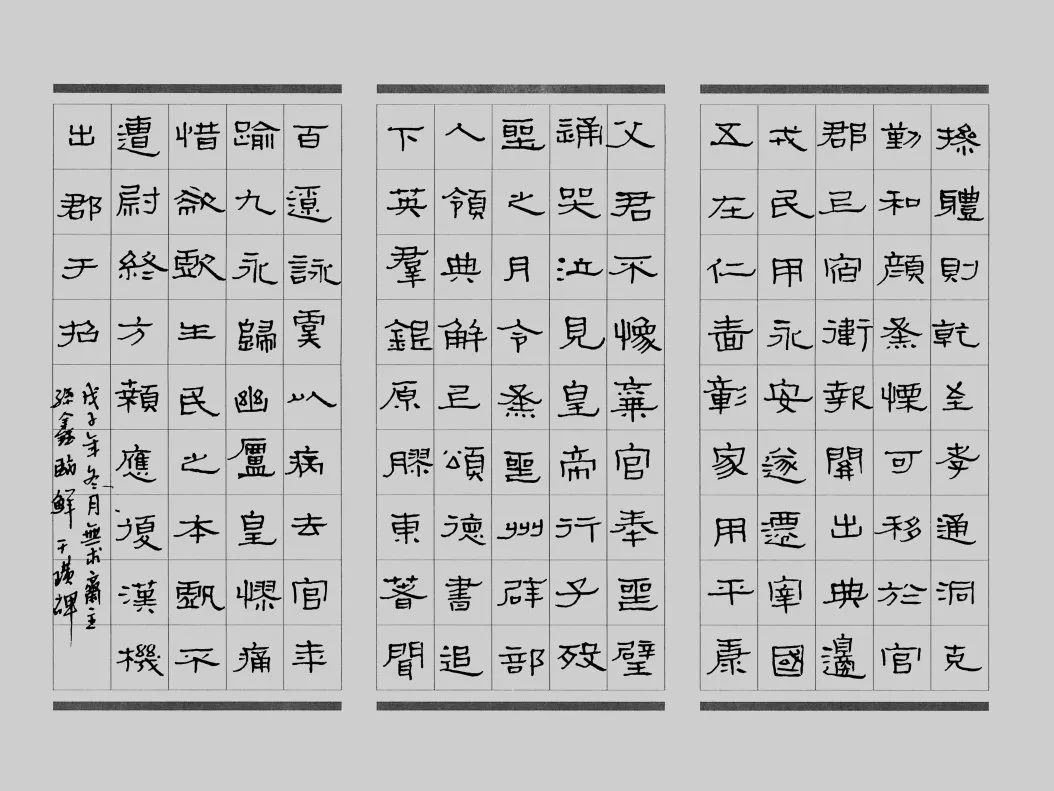 操體則乾至孝通洞克
勤和顏烝慄可移於官
郡已宿衛報關出典邊
戎民用永安遂遷宰國
五在仁嗇彰家用平康
父君不像棄官奉璧
踊哭泣見皇帝行子歿
聖之月令烝聖州辟部
人領典解已頌德書追
下英羣銀原膠東著聞
百遼詠虞以病去官年
踰九永歸幽廬皇慘痛
惜欷歔生民之本不
遭尉終方頼應復漢機
出郡于招
戊子年冬月無求齋主
孫鑫臨鮮于璜碑